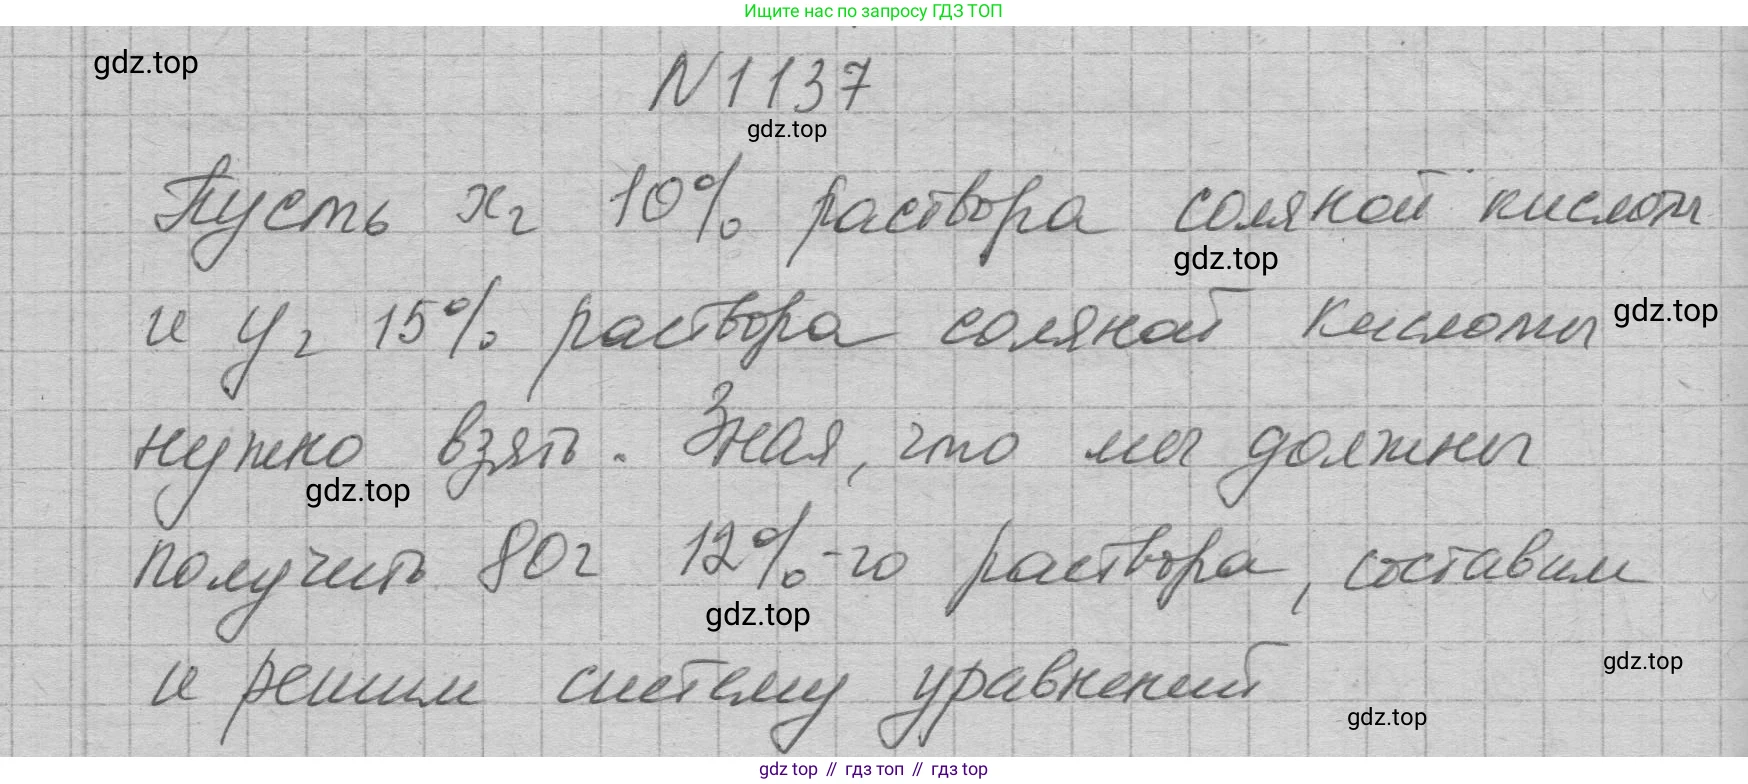 Ищите нас по запросу ГДЗ ТОП
gdz.top
N 1137
gdz.top
Пусть х г 10% раствора соляной кислоты
gdz.top
и у г 15% раствора соляной кислоты
gdz.top
нужно взять. Зная, что мы должны
gdz.top
получить 80 г 12%-го раствора, составим
gdz.top
и решим систему уравнений
gdz.top
gdz.top
gdz top // гдз топ // гдз top